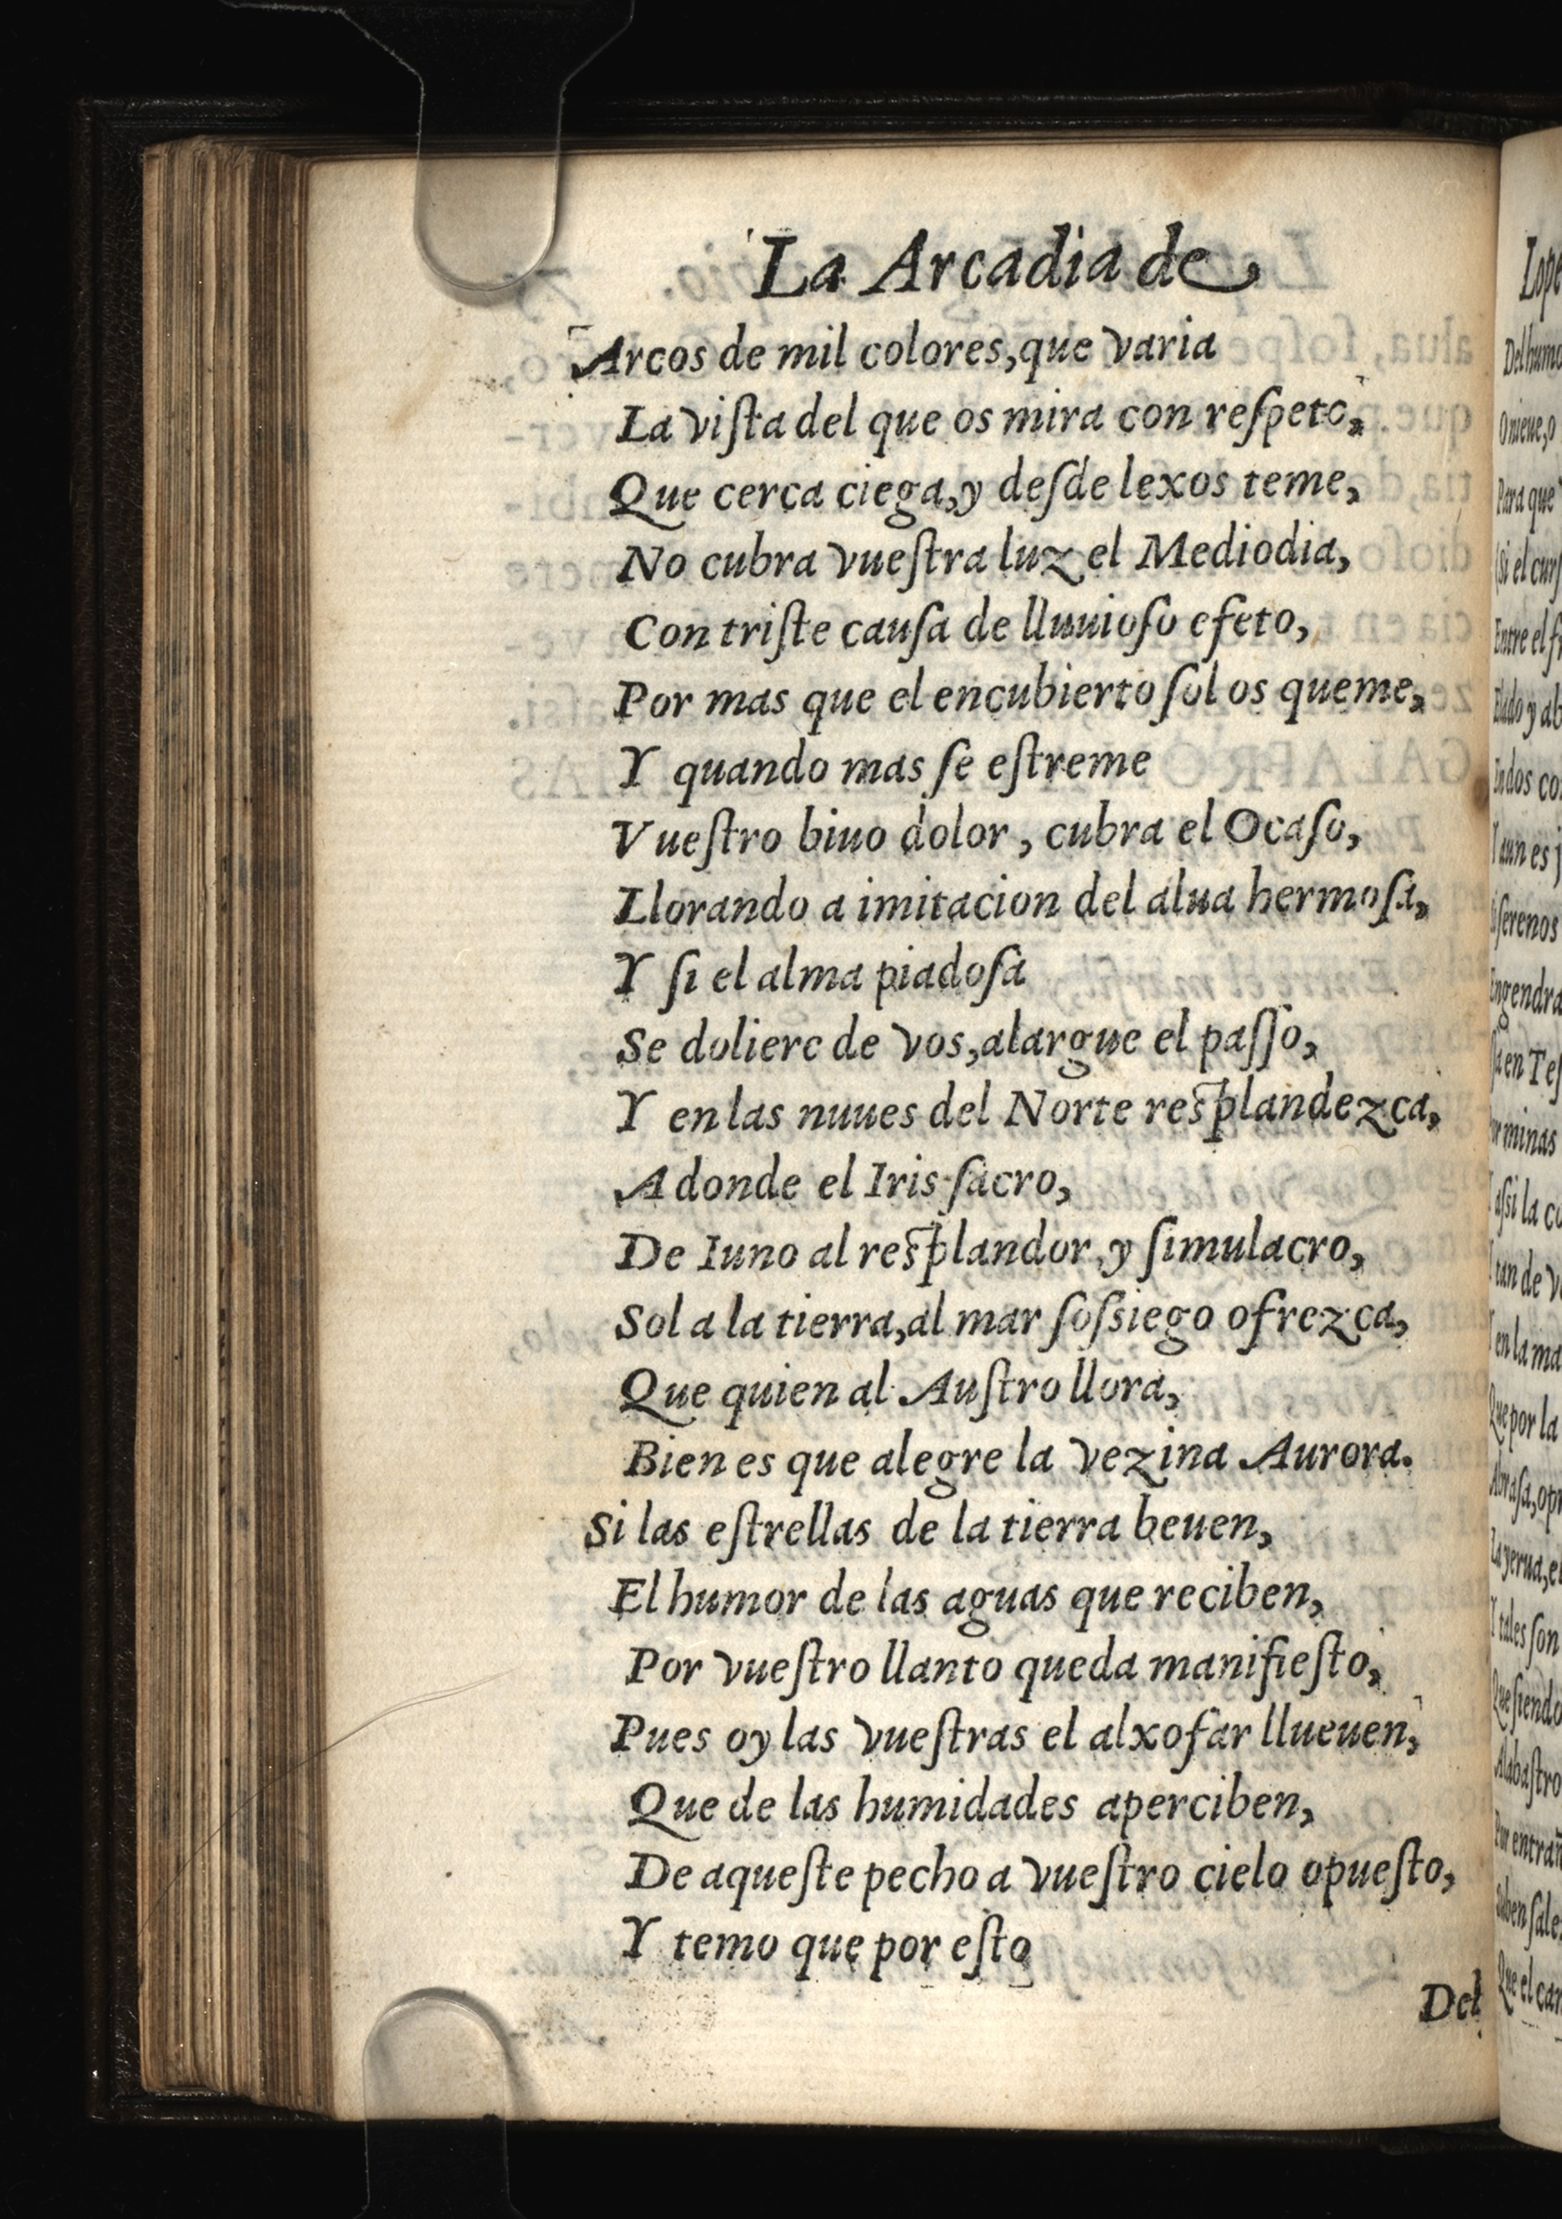 La Arcadia de
Arcos de mil colores, que varia
La viſta del que os mira con reſpeto,
Que cerca ciega, y deſde lexos teme,
No cubra vueſtra luz el Mediodia,
Con triſte cauſa de lluuioſo efeto,
Por mas que el encubierto ſol os queme,
Y quando mas ſe eſtreme
Vueſtro biuo dolor, cubra el Ocaſo,
Llorando a imitacion del alua hermoſa,
Y ſi el alma piadoſa
Se doliere de vos, alargue el paſſo,
Y en las nuues del Norte reſplandezca,
Adonde el Iris ſacro,
De Iuno al reſplandor, y ſimulacro,
Sol a la tierra, al mar ſoſsiego ofrezca,
Que quien al Auſtro llora,
Bien es que alegre la vezina Aurora.
Si las eſtrellas de la tierra beuen,
El humor de las aguas que reciben,
Por vueſtro llanto queda manifieſto,
Pues oy las vueſtras el alxofar llueuen,
Que de las humidades aperciben,
De aqueſte pecho a vueſtro cielo opueſto,
Y temo que por eſto
Del
Lope
O nieue, o
Para que
Entre el
Elado y
En dos
Y aun es
ſerenos
Engendra
minas
aſsi la
tan de
en la
Que por la
Abraſa,
La yerua,
Y tales ſon
Que ſiendo
Alabaſtro
Por
ſale
Que el